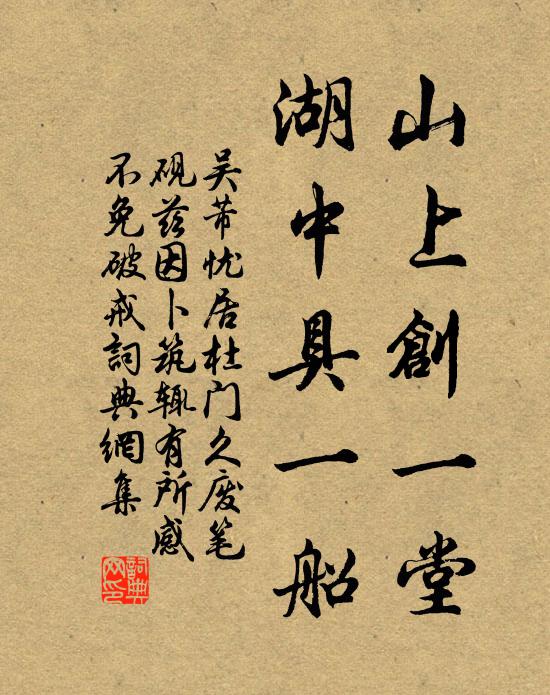 山上創一堂
湖中具一船
吴芾忧居杜门久废笔
砚兹因卜筑辄有所感
不免破戒詞典網集
詞典
网印